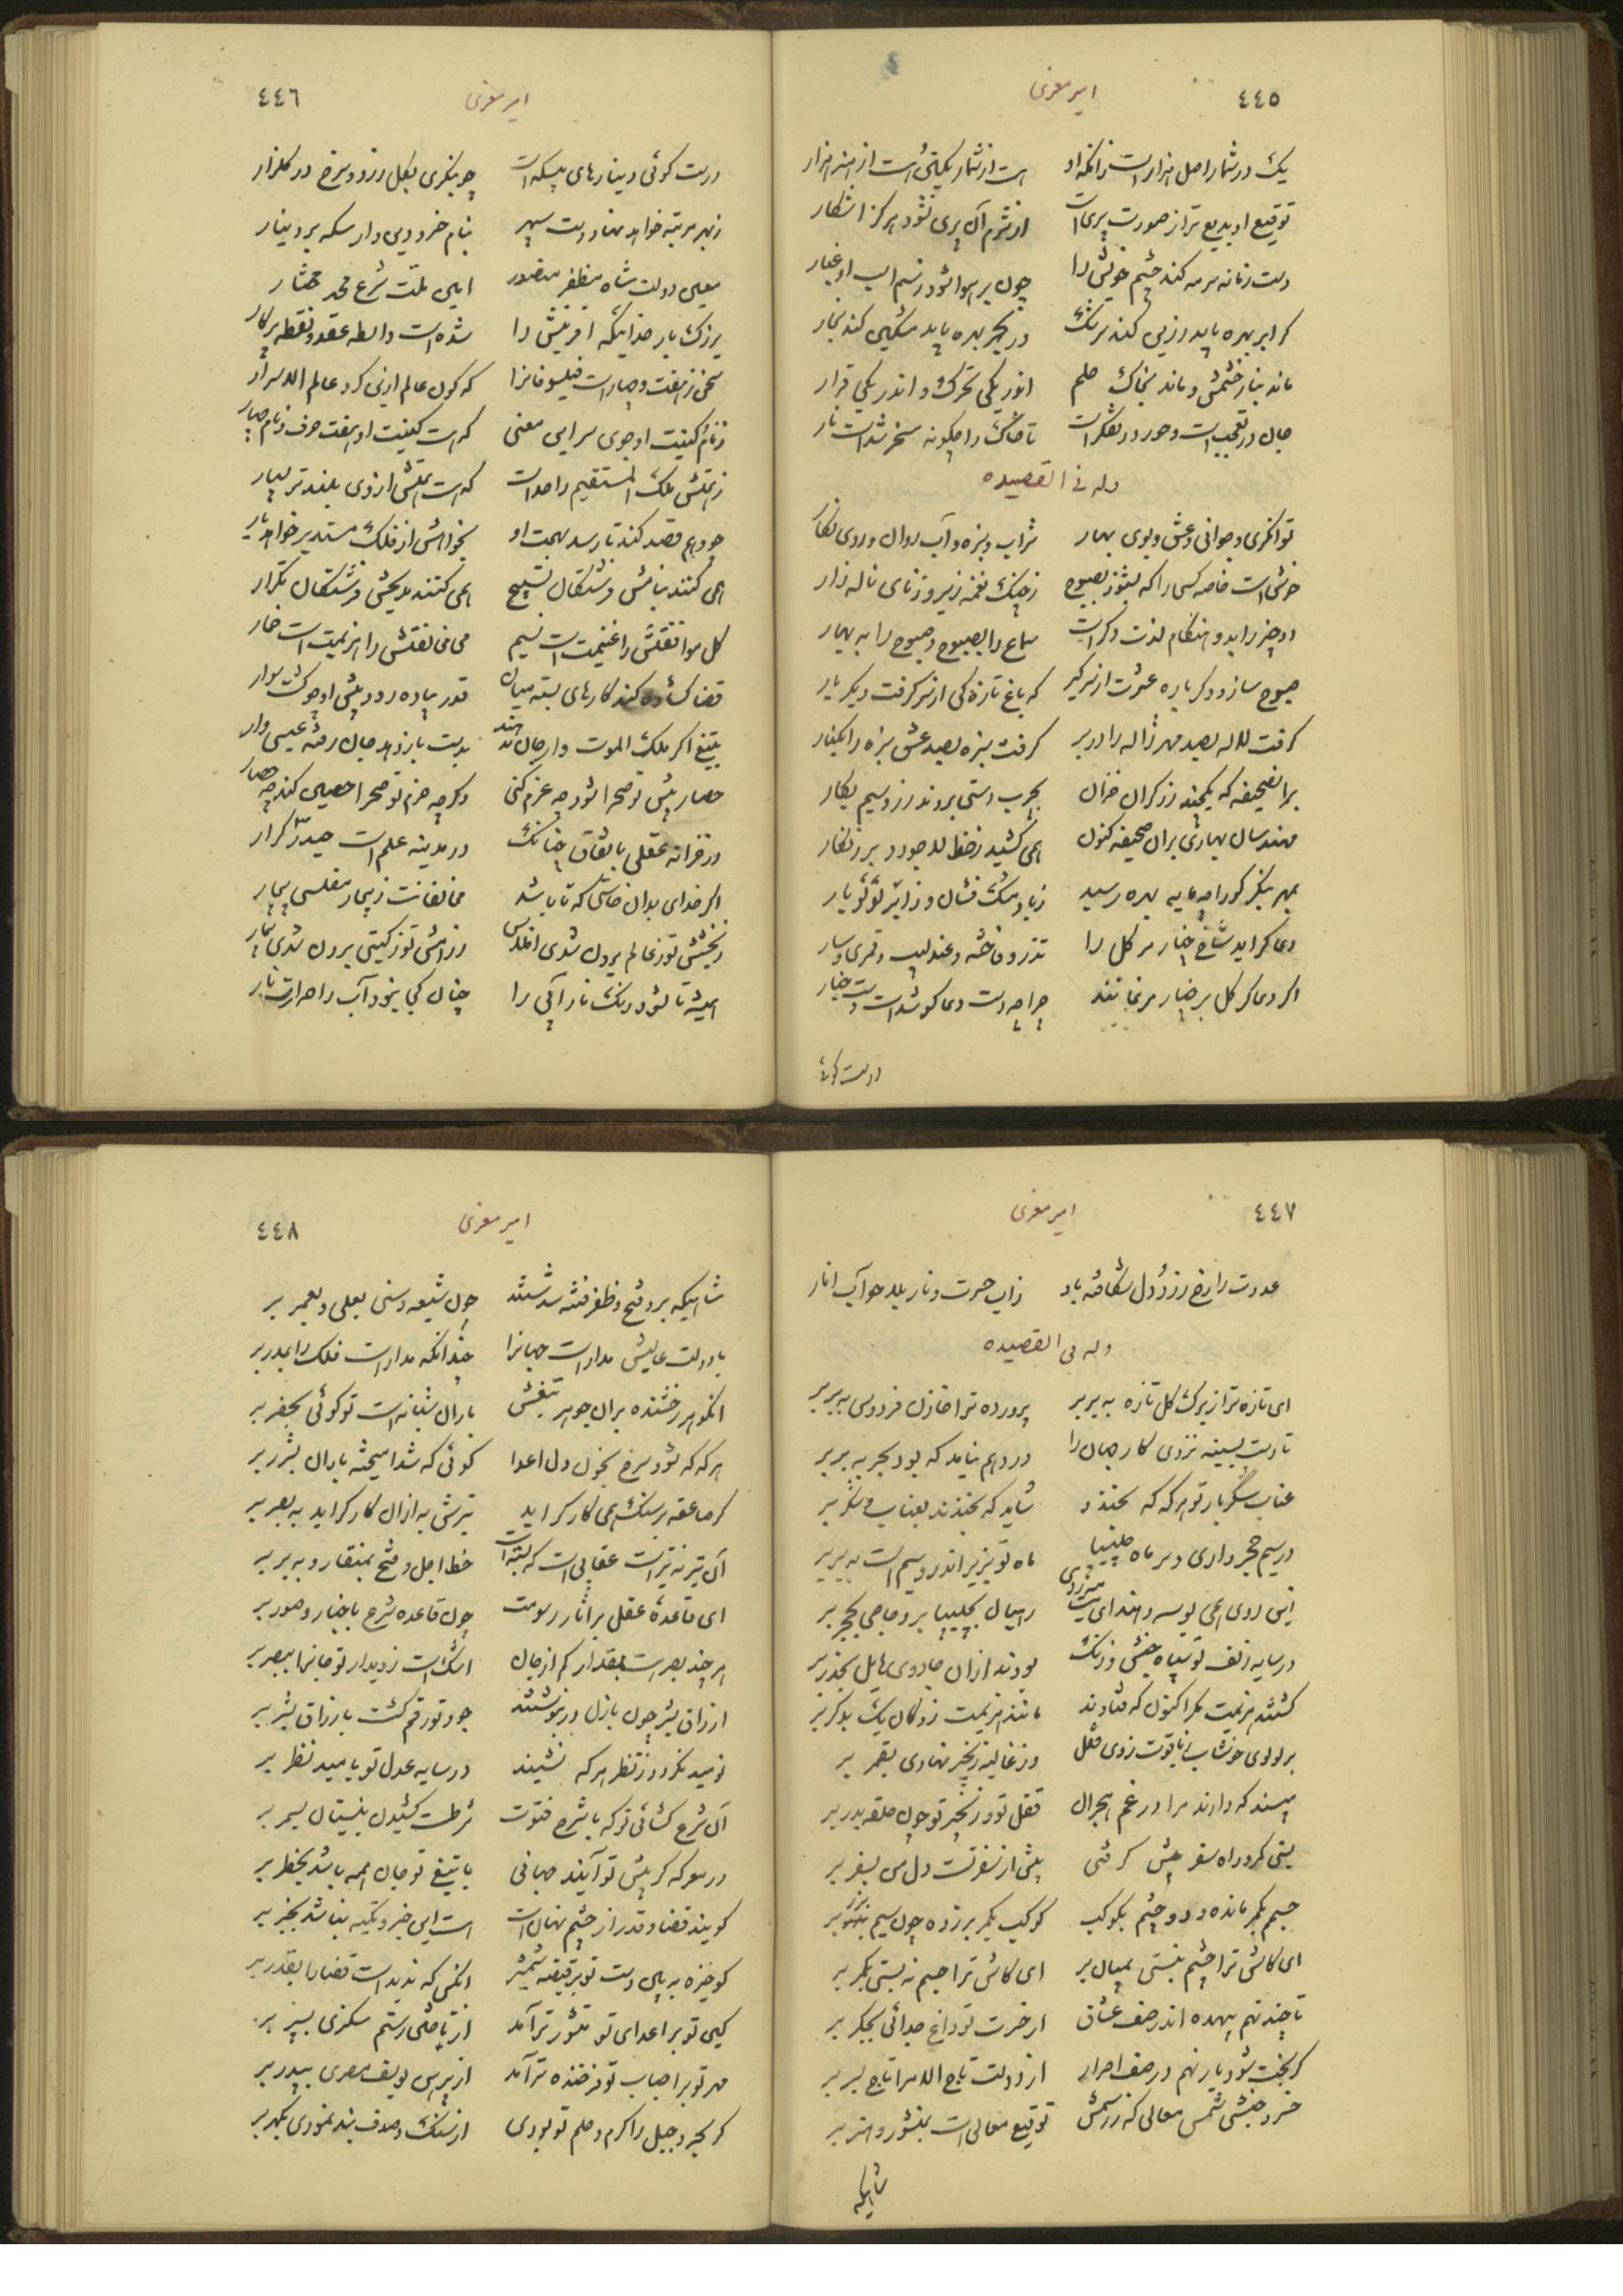 ٤٤٥
امیر معزی
یک در شمار اصل هزار است زانکه او است از شمار یکتی است از هنر هزار
توقیع او بدیع تر از صورت پری است از شرم آن پری نشود هرگز آشکار
دست زمانه سرمه کند چشم خویش را چون بر هوا شود ز سم اسب او غبار
گر ابر بهره یابد زیی کند سرشک ور بحر بهره یابد مشکین کند بخار
ماند بنار خشمش و ماند بخاک حلم اندر یکی تحرک و اندر یکی قرار
جان در تعجب است و خرد در تفکر است تا خاک را چگونه مسخر شد است نار
وله فی القصیده
توانگری و جوانی و عشق و بوی بهار شراب و سبزه و آب روان و روی نگار
خوش است خاصه کسی را که بشنود بصبوح ز چنگ نغمه زیر و ز نای ناله زار
دو چیز را بدو هنگام لذت دگر است سماع را بصبوح و صبوح را به بهار
صبوح ساز و دگر باره عشرت از سر گیر که باغ تازه گی از سر گرفت دیگر بار
گرفت لاله بصد مهر ژاله را در بر گرفت سبزه بصد عشق سبزه را بکنار
بر آن صحیفه که یکچند زرگران خزان بچرب دستی بردند زر و سیم بکار
مهندسان بهاری بر آن صحیفه کنون همی کشید ز خط لاجورد بر زنگار
بمهر بنگر کو را چه مایه بهره رسید ز باد مشک فشان و ز ابر لؤلؤ بار
دعا گر اید شاخ چنار مر گل را تذرو و فاخته و عندلیب و قمری و سار
اگر دعا گر گل بر چنار مرغانند چرا چو دست دعا گو شد است دست چنار
درست گوئی
٤٤٦
امیر معزی
درست گوئی دینارهای بیسکه است چو بنگری بگل زرد و سرخ در گلزار
زبهر مرتبه خواهد نهاد دست سپهر بنام خسرو دین دار سکه بر دینار
معین دولت شاه مظفر منصور امین ملت شرع محمد مختار
بزرگ بار خدائیکه آفرینش را شده است واسطه عقد و نقطه پرگار
سخن ز هفت و چهار است فیلسوفانرا که کون عالم ازین کرد عالم الاسرار
ز نام کنیت او جوی سر این معنی که است کنیت او هفت حرف و نام چهار
ز همتش فلک المستقیم واحد است که است همتش از وی بلند تر بسیار
چو وهم قصد کند تا رسد بهمت او بخواهش از فلک مستدیر خواهد بار
همی کنند بنامش فرشتگان تسبیح همی کنند بمدیحش فرشتگان تکرار
گل موافقتش را غنیمت است نسیم می مخالفتش را هزیمت است خمار
قضا گشاده کند کارهای بسته میان قدر پیاده رود پیش او چو گشت سوار
بتیغ اگر ملک الموت وار جان ستند بدست باز دهد جان رفته عیسی وار
حصار پیش تو صحرا شود چو عزم کنی وگر چه حزم تو صحرا حصین کند چو حصار
در خزانه عقلی باتفاق چنانک در مدینه علم است حیدر کرار
اگر خدای بدان خاستی که تا باشد مخالفانت ز بیمار مفلسی بیمار
ز بخشش تو ز عالم برون شدی افلاس ز دانش تو ز گیتی برون شدی بیمار
همیشه تا نشود رنگ نار آبی را چنان کجا نبود آب را حرارت نار
٤٤٧
امیر معزی
عدوت را رخ زرد و دل شکافته باد ز آب حسرت و نار بلا چو آب انار
وله فی القصیده
ای تازه تر از برگ گل تازه به بر بر پرورده ترا خازن فردوس به بر بر
تا دست بسینه نزدی کار جهان را در وهم نیامد که بود بحر به بر بر
عناب شکربار تو هر گه که بخندد شاید که بخندند بعناب و شکر بر
در سیم حجر داری و بر ماه چلیپا ماه تو بزیر اندر و سیم است به بر بر
این روی همی بوسه و هند ای بت رهبان بچلیپا بر و حاجی بحجر بر
در سایه زلف تو سپاه حبش و زنگ بودند از آن جادوی بابل بحذر بر
گشتند هزیمت مگر اکنون که فتادند مانند هزیمت زدگان یک بدگر بر
بر لولوی خوشاب ز یاقوت زدی قفل وز غالیه زنجیر نهادی بقمر بر
مپسند که دارند مرا در غم هجران قفل تو و زنجیر تو چون حلقه بدر بر
بستی کمر و راه سفر پیش گرفتی پیش از سفر تست دل من بسفر بر
جسمم بکمر مانده و دو چشم بکوکب کوکب بکمر بر زده چون سیم بزر بر
ای کاش ترا چشم نبستی بمیان بر ای کاش ترا جسم نه بستی بکمر بر
تا چند نهم بیهده اندر صف عشاق از حسرت تو داغ جدائی بجگر بر
گر بخت شود یار نهم در صف احرار از دولت تاج الامرا تاج بسر بر
خسرو حبشی شمس معالی که ز رسمش توقیع معالی است بمنشور و هنر بر
شاهیکه
٤٤٨
امیر معزی
شاهیکه برو فتح و ظفر فتنه شد ستند چون شیعه و سنی بعلی و بعمر بر
با دولت عالیش مدار است جهانرا چندانکه مدار است فلک را بمدر بر
انگوهر رخشنده بران جوهر تیغش باران شبانه است تو گوئی بخضر بر
هر گه که شود سرخ بخون دل اعدا گوئی که شد امیخته باران بشرر بر
گر صاعقه بر سنگ همی کار گر اید تیرش به از آن کار گر اید به بصر بر
آن تیر نه تیر است عقابی است که بسته است خط اجل و فتح بمنقار و به پر بر
ای قاعده عقل بر آثار رسومت چون قاعده شرع باخبار و صور بر
هر چند بصر است بمقدار کم از جان اشک است ز دیدار تو جانرا ببصر بر
ارزاق بشر چون بازل در بنوشتند جود تو رقم گشت بارزاق بشر بر
نومید نگردد ز نظر هر که نشیند در سایه عدل تو بامید نظر بر
آن شرع گشائی تو که با شرح فتوت شرطست کشیدن بنیستان بسمر بر
در معرکه گر پیش تو آیند جهانی با تیغ تو جان همه باشد بخطر بر
گویند قضا و قدر از چشم نهان است است این خبر و تکیه نباشد بخبر بر
گو خیزه به بین دست تو بر قبضه شمشیر انکس که ندید است قضا را بقدر بر
کین تو بر اعدای تو مشؤر تر آمد از تاختن رستم سگزی بپسر بر
مهر تو بر احباب تو فرخنده تر آمد از پیرهن یوسف مصری بپدر بر
گر بحر و جبل را کرم و حلم تو بودی از سنگ و صدف بند نبودی بگهر بر